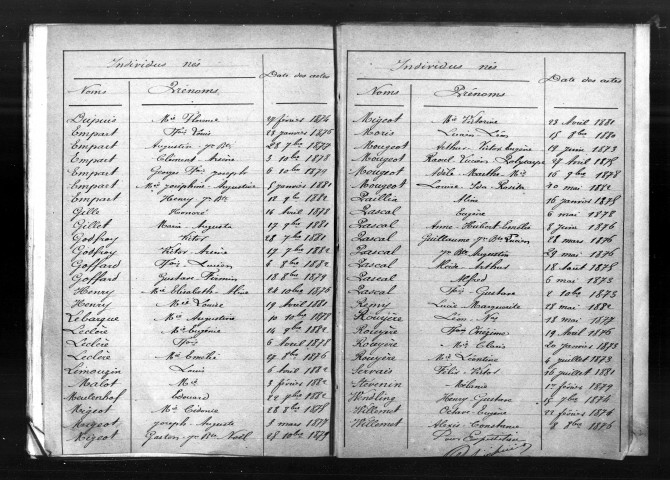 Individus nés
Date des actes
Noms
Prénoms
Dupuis Mie Florence 27 février 1874
Empart Fçois Louis 23 janvier 1875
Empart Augustin Jn Bte 28 7bre 1877
Empart Clément Arsène 3 10bre 1878
Empart Georges Fçois Joseph 6 10bre 1879
Empart Mie Joséphine Augustine 5 janvier 1881
Empart Henry Jn Bte 12 9bre 1882
Gille Honoré 16 Avril 1873
Gillet Marie Augusta 17 9bre 1881
Godfroy Victor 28 7bre 1881
Godfroy Victor Arsène 17 7bre 1882
Goffard Fçois Lucien 8 8bre 1882
Goffard Gustave Firmin 18 8bre 1879
Henry Mie Elisabeth Aline 24 10bre 1875
Henry Mie Louise 19 Avril 1881
Lebarque Mie Augustine 10 10bre 1878
Leclère Mie Eugénie 14 9bre 1882
Leclère Fçois 6 Avril 1878
Leclère Mie Emélie 1876
Limousin Louis 6 Avril 1882
Malot Mie 3 février 1882
Edouard 22 9bre 1882
Migeot Mie Cedonie 28 8bre 1875
Migeot Joseph Auguste 3 mars 1877
Migeot Gaston Jn Bte Noël 25 10bre 1879
Individus nés
Date des actes
Noms
Prénoms
Migeot Mie Victorine 23 Avril 1881
Moris Lucien Léon 15 8bre 1880
Mougeot Arthur Victor Eugène 19 juin 1873
Mougeot Raoul Vivien Polycarpe 27 Avril 1875
Mougeot Adèle Marthe Mie 16 9bre 1878
Mougeot Louise Ida Rosita 20 mai 1882
Paillia Aline 16 janvier 1875
Pascal Eugène 6 mai 1878
Pascal Anne Hubert Emélie 8 juin 1876
Pascal Guillaume Jn Bte Lucien 28 mars 1876
Pascal Jn Bte Augustin 29 mai 1876
Pascal Arthur 18 Août 1875
Pascal Alfred 6 mai 1873
Pascal Fçois Gustave 2 10bre 1873
Remy Lucie Marguerite 28 mai 1882
Rouyère Léon 18 mai 1877
Rouyère Fçois Onézime 19 Avril 1875
Rouyère Mie Clarie 20 janvier 1873
Rouyère Mie Léontine 6 juillet 1873
Servais Félix Victor 16 juillet 1881
Stévenin Mélanie 1er février 1879
Wendling Henry Gustave 15 7bre 1874
Willemet Octave Eugène 22 février 1874
Willemet Alexis Constance 8 8bre 1876
Pour Expédition